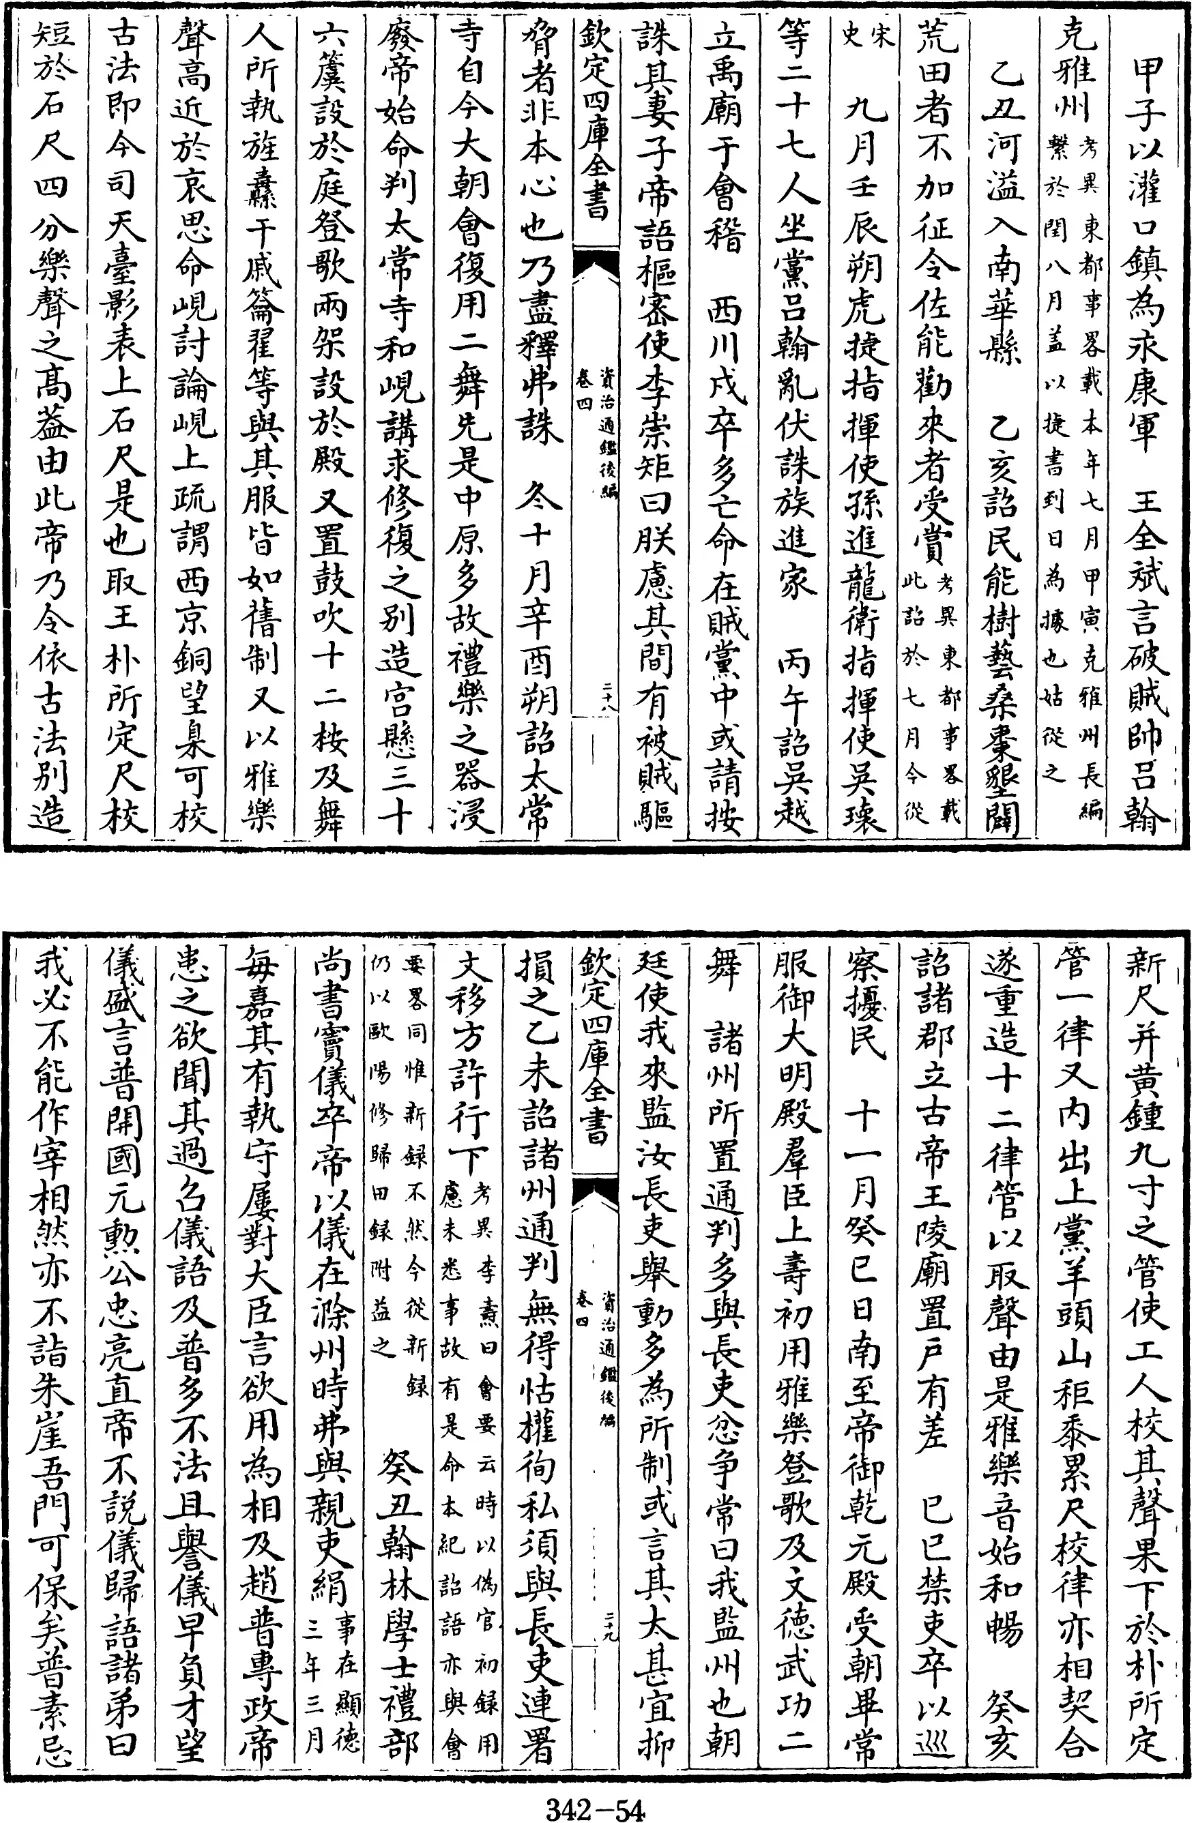 甲子以灌口鎮為永康軍　王全斌言破賊帥吕翰
克雅州考異東都事畧載本年七月甲寅克雅州長編
繫於閏八月蓋以捷書到日為據也姑從之
乙丑河溢入南華縣　乙亥詔民能樹藝桑棗墾闢
荒田者不加征令佐能勸來者受賞考異東都事畧載
此詔於七月今從
宋
史　九月壬辰朔虎捷指揮使孫進龍衛指揮使吳瓌
等二十七人坐黨吕翰亂伏誅族進家　丙午詔吳越
立禹廟于會稽　西川戍卒多亡命在賊黨中或請按
誅其妻子帝語樞密使李崇矩曰朕慮其間有被賊驅
欽定四庫全書
資治通鑑後編
卷四
二十八
脅者非本心也乃盡釋弗誅　冬十月辛酉朔詔太常
寺自今大朝會復用二舞先是中原多故禮樂之器浸
廢帝始命判太常寺和峴講求修復之別造宮懸三十
六簴設於庭登歌兩架設於殿又置鼓吹十二桉及舞
人所執旌纛干戚籥翟等與其服皆如舊制又以雅樂
聲高近於哀思命峴討論峴上疏謂西京銅望臬可校
古法即今司天臺影表上石尺是也取王朴所定尺校
短於石尺四分樂聲之高蓋由此帝乃令依古法別造
新尺并黃鍾九寸之管使工人校其聲果下於朴所定
管一律又内出上黨羊頭山秬黍累尺校律亦相契合
遂重造十二律管以取聲由是雅樂音始和暢　癸亥
詔諸郡立古帝王陵廟置戶有差　己巳禁吏卒以巡
察擾民　十一月癸巳日南至帝御乾元殿受朝畢常
服御大明殿羣臣上壽初用雅樂登歌及文德武功二
舞　諸州所置通判多與長吏忿争常曰我監州也朝
廷使我來監汝長吏舉動多為所制或言其太甚宜抑
欽定四庫全書
資治通鑑後編
卷四
二十九
損之乙未詔諸州通判無得怙權徇私須與長吏連署
文移方許行下考異李燾曰會要云時以偽官初錄用
慮未悉事故有是命本紀詔語亦與會
要畧同惟新録不然今從新録
仍以歐陽修歸田録附益之　癸丑翰林學士禮部
尚書竇儀卒帝以儀在滁州時弗與親吏絹事在顯德
三年三月
每嘉其有執守屢對大臣言欲用為相及趙普專政帝
患之欲聞其過召儀語及普多不法且譽儀早負才望
儀盛言普開國元勲公忠亮直帝不說儀歸語諸弟曰
我必不能作宰相然亦不詣朱崖吾門可保矣普素忌
342-54